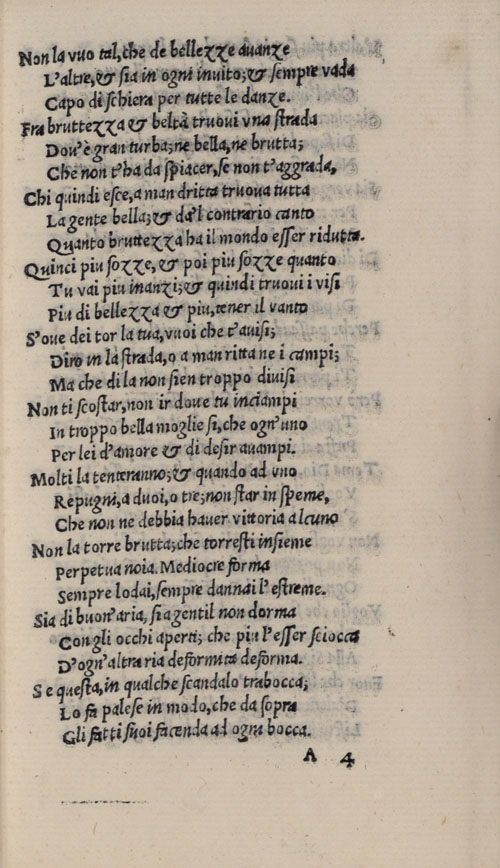 Non la vuo tal, che de bellezze auanze
L'altre, & sia in ogni inuito; & sempre vada
Capo di schiera per tutte le danze.
Fra bruttezza & beltà truoui vna strada
Dou'è gran turba; ne bella, ne brutta;
Che non t'ha da spiacer, se non t'aggrada,
Chi quindi esce, a man dritta truoua tutta
La gente bella; & dal contrario canto
Quanto bruttezza ha il mondo esser ridutta.
Quinci piu sozze, & poi piu sozze quanto
Tu vai piu inanzi; & quindi truoui i visi
Piu di bellezza & piu, tener il vanto
S'oue dei tor la tua, vuoi che t'auisi;
Diro in la strada, o a man ritta ne i campi;
Ma che di la non sien troppo diuisi
Non ti scostar, non ir doue tu inciampi
In troppo bella moglie sì, che ogn'uno
Per lei d'amore & di desir auampi.
Molti la tenteranno; & quando ad vno
Repugni, a duoi, o tre; non star in speme,
Che non ne debbia hauer vittoria alcuno
Non la torre brutta; che torresti insieme
Perpetua noia. Mediocre forma
Sempre lodai, sempre dannai l'estreme.
Sia di buon'aria, sia gentil non dorma
Con gli occhi aperti; che piu l'esser sciocca
D'ogn'altra ria deformità deforma.
Se questa, in qualche scandalo trabocca;
Lo fa palese in modo, che da sopra
Gli fatti suoi facenda ad ogni bocca.
A 4